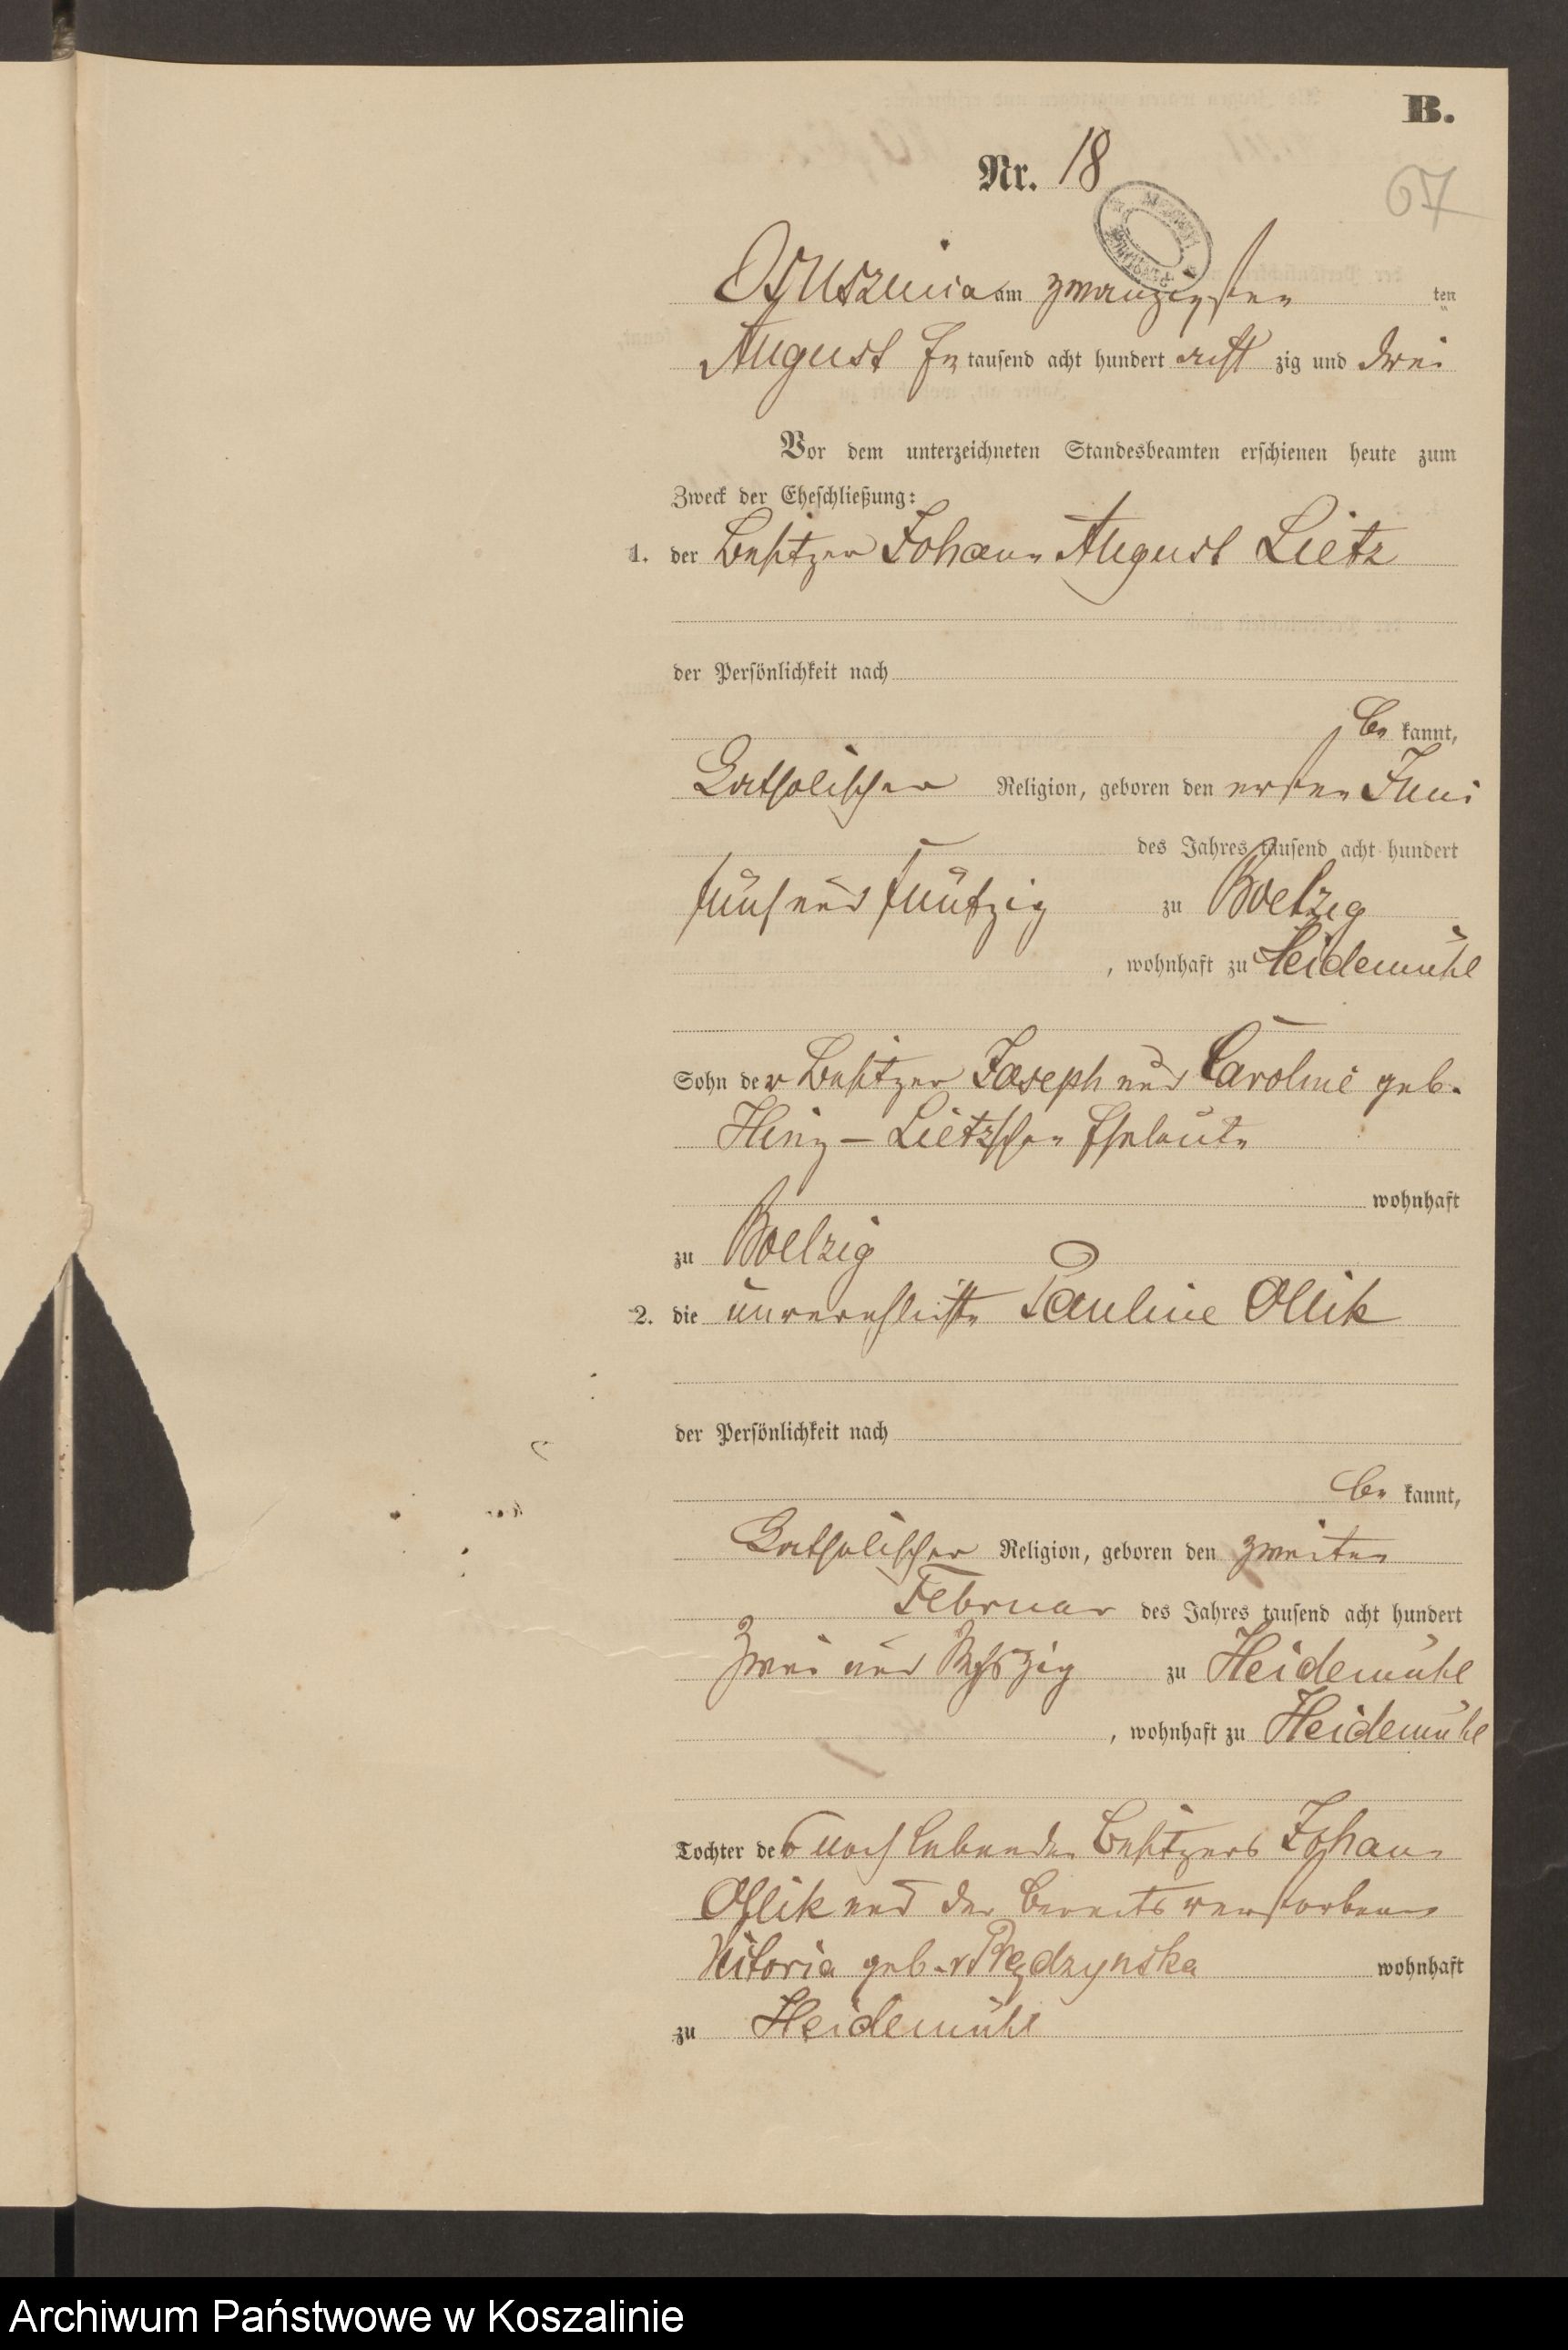 B.
Nr. 18
67
Ossusznica am zwanzigsten ten
August Ein tausend acht hundert acht zig und drei
Vor dem unterzeichneten Standesbeamten erschienen heute zum
Zweck der Eheschließung:
1. der Besitzer Johann August Lietz
der Persönlichkeit nach
be kannt,
Catholischer Religion, geboren den ersten Juni
des Jahres tausend acht hundert
fünf und fünfzig zu Boelzig
, wohnhaft zu Heidemühl
Sohn der Besitzer Joseph und Caroline geb.
Hinz – Lietzschen Eheleute
wohnhaft
zu Boelzig
2. die unverehlichte Pauline Ollik
der Persönlichkeit nach
be kannt,
Catholischer Religion, geboren den zweiten
Februar des Jahres tausend acht hundert
zwei und zu Heidemühl
, wohnhaft zu Heidemühl
Tochter des noch lebenden Besitzers Johann
Ollik und der bereits verstorbenen
Vitoria geb. v
wohnhaft
zu Heidemühl
Archiwum Państwowe w Koszalinie